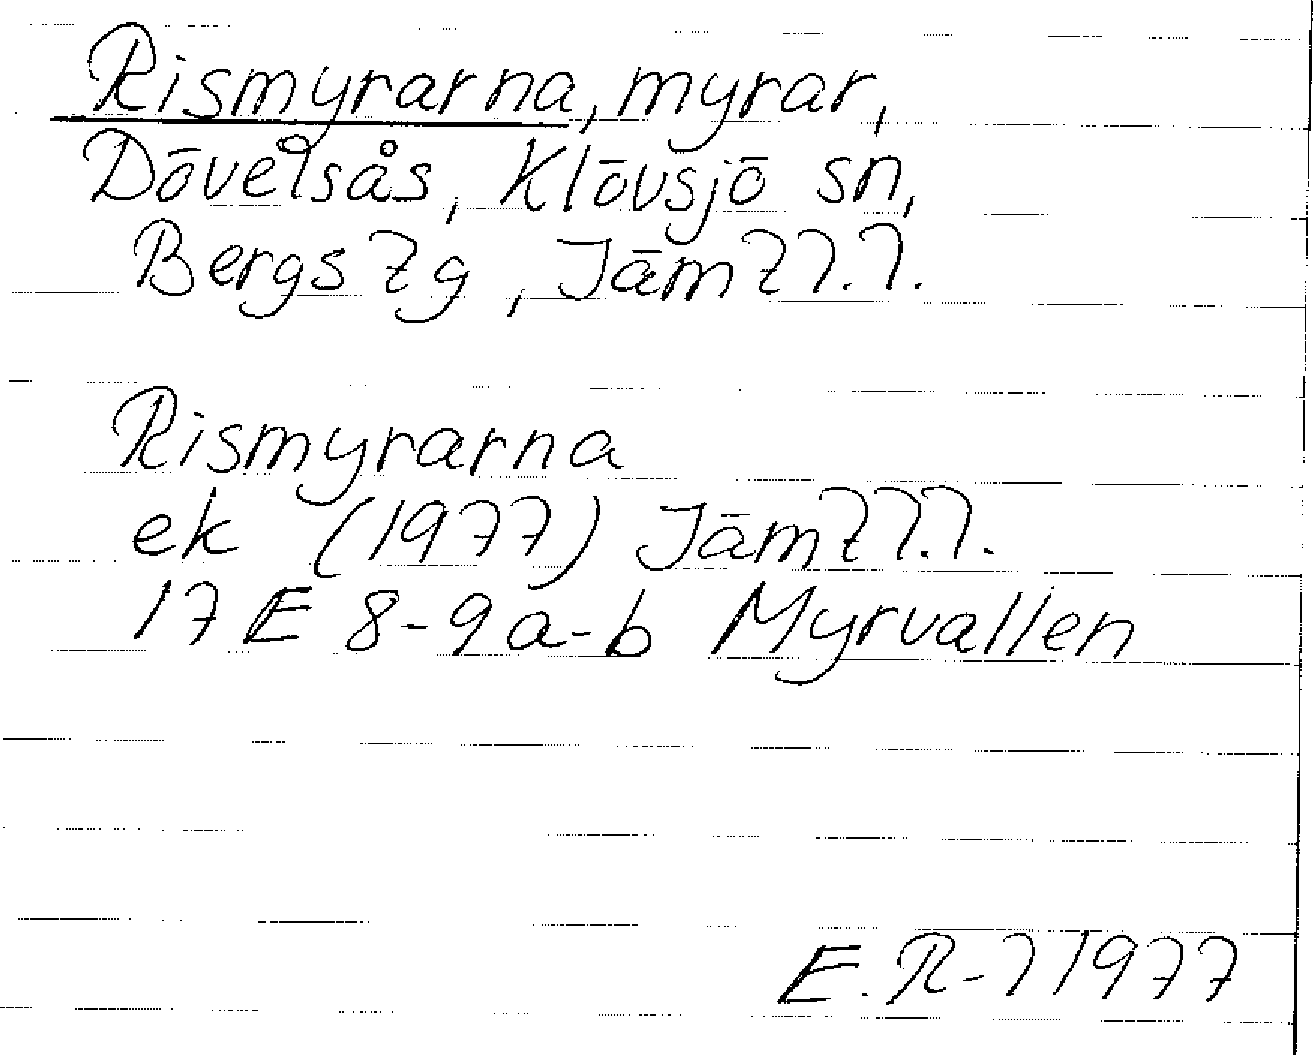 Rismyrarna, myrar,
Dövelsås, Klövsjö sn,
Bergs
Rismyrarna
ek (1977)
17 E 8-9 a-b Myrvallen
E. R- 1977